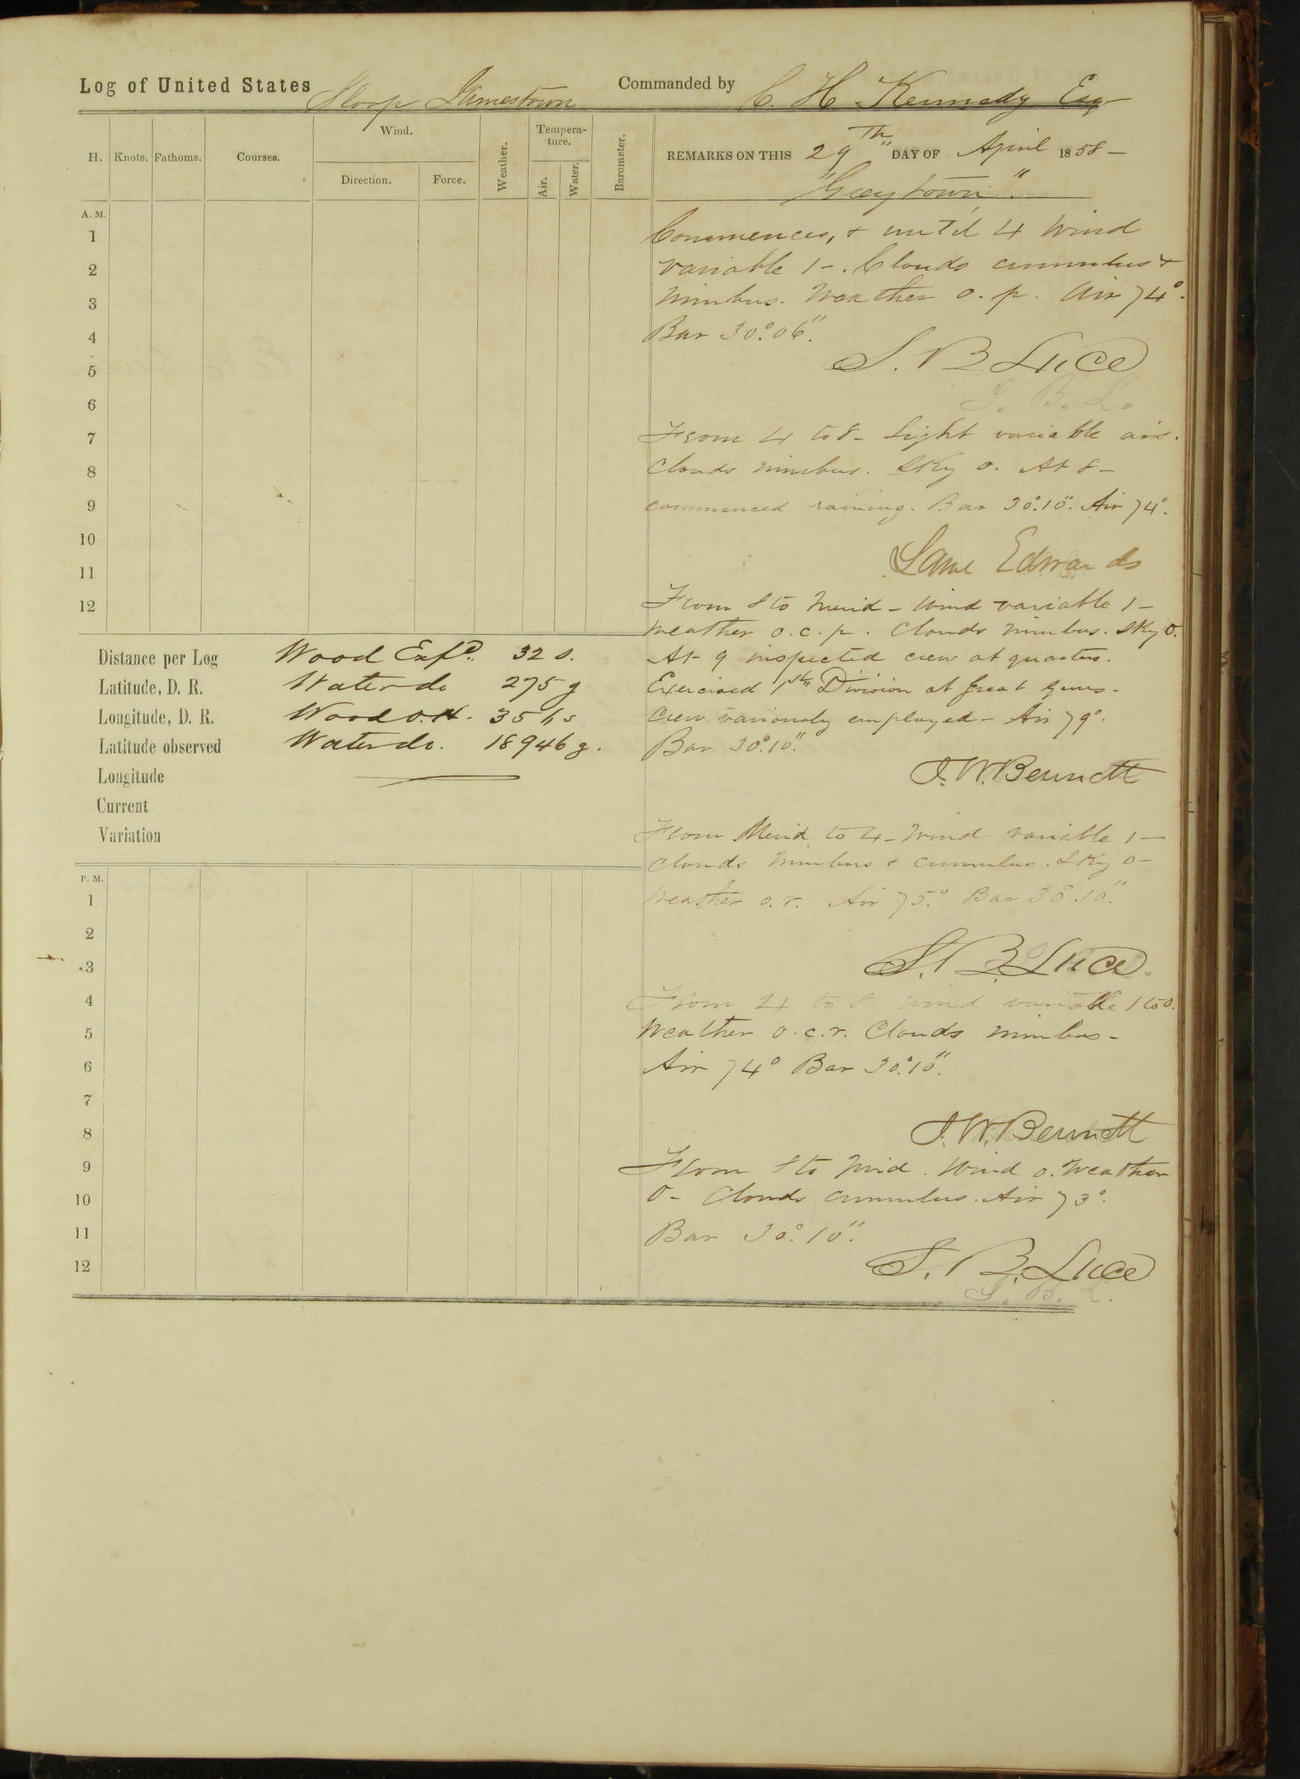 Log of United States Sloop Jamestown Commanded by C. H. Kennedy Esq
H. Knots. Fathoms. Courses. Wind. Direction. Force. Weather. Tempera-ture. Air. Water. Barometer.
REMARKS ON THIS 29th DAY OF April 1858 -
"Greytown"
A. M.
1
2
3
4
5
6
7
8
9
10
11
12
Commences, & until 4 Wind
variable 1-. Clouds cumulus &
nimbus. Weather o. p. Air 74°.
Bar 30°.06".
S. B. Luce
S. B. L.
From 4 to 8- light variable airs.
Clouds nimbus. Sky 0. At 8-
commenced raining. Bar 30°.10". Air 74°.
Edwards
From 8 to Merid - Wind variable 1-
Weather o. c. p. Clouds nimbus. Sky 0.
At 9 inspected crew at quarters.
Exercised 1st Division at great guns-
Crew variously employed - Air 79°.
Bar 30°.10".
J. W. Bennett
Distance per Log
Latitude, D. R.
Longitude, D. R.
Latitude observed
Longitude
Current
Variation
Wood Expd. 32 s.
Water do 275 g
Wood O. H.
Water do. 18946 g.
P. M.
1
2
3
4
5
6
7
8
9
10
11
12
From Merid to 4- Wind variable 1-
Clouds nimbus & cumulus. Sky 0-
Weather o. r. Air 75.° Bar 30°.10".
S. B. Luce
From 4 to 8 wind variable 1 to 0.
Weather o. c. r. Clouds nimbus-
Air 74° Bar 30°.10".
J. W. Bennett
From 8 to Mid. Wind 0. Weather
0- Clouds cumulus. Air 73°.
Bar 30°.10".
S. B. Luce
S. B. L.